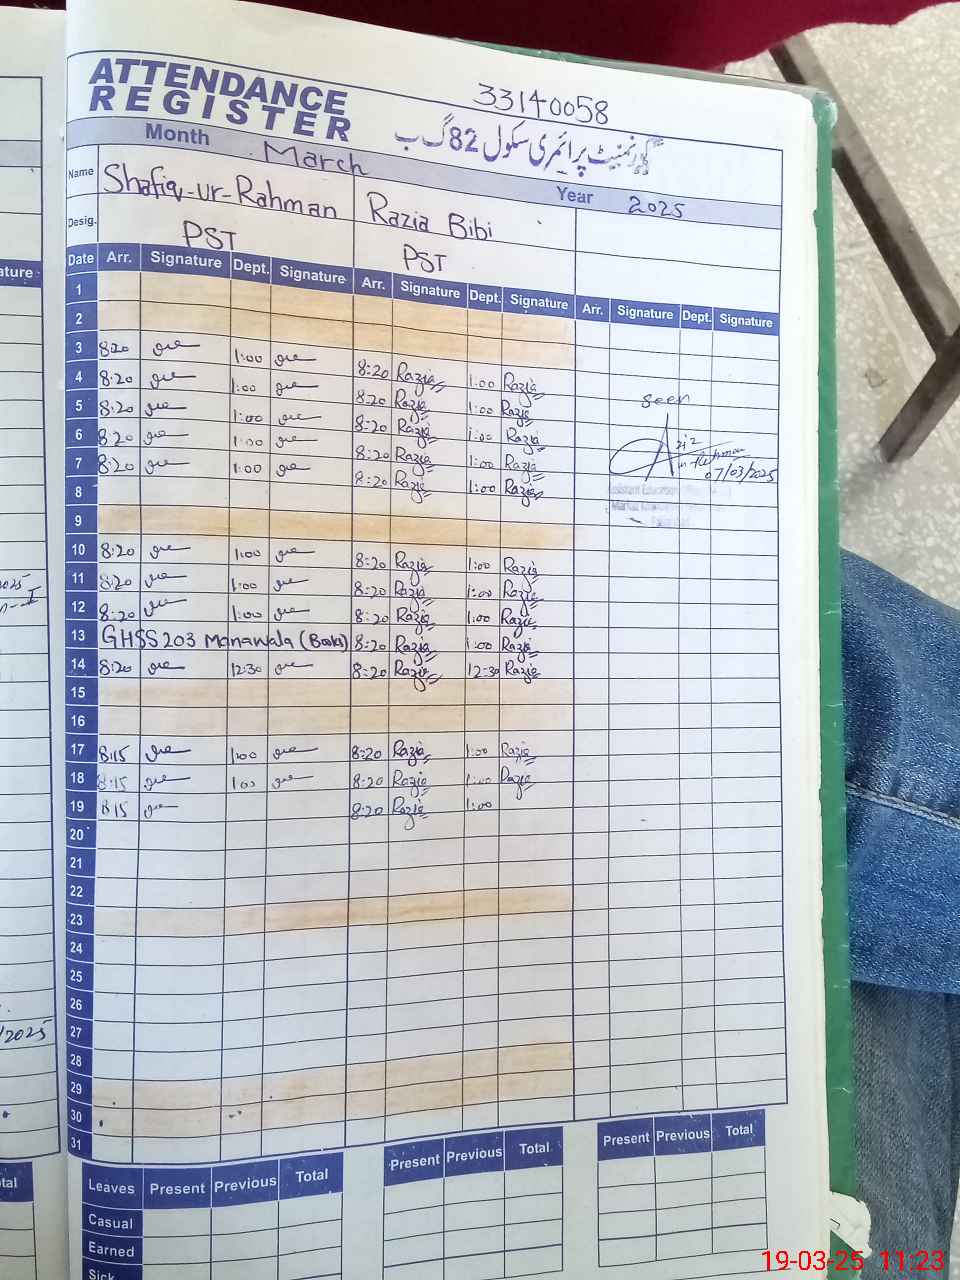 ATTENDANCE
REGISTER
33140058
گورنمنیٹ پرائمری سکول 82 گ ب
Month March Year 2025
Name Shafiq-ur-Rahman Razia Bibi
Desig. PST PST
Date Arr. Signature Dept. Signature Arr. Signature Dept. Signature Arr. Signature Dept. Signature
1
2
3 8:20 1:00 8:20 Razia 1:00 Razia
4 8:20 1:00 8:20 Razia 1:00 Razia
5 8:20 1:00 8:20 Razia 1:00 Razia
6 8:20 1:00 8:20 Razia 1:00 Razia
7 8:20 1:00 8:20 Razia 1:00 Razia
seen
07/03/2025
8
9
10 8:20 1:00 8:20 Razia 1:00 Razia
11 8:20 1:00 8:20 Razia 1:00 Razia
12 8:20 1:00 8:20 Razia 1:00 Razia
13 GHSS 203 Manawala (Books) 8:20 Razia 1:00 Razia
14 8:20 12:30 8:20 Razia 12:30 Razia
15
16
17 8:15 1:00 8:20 Razia 1:00 Razia
18 8:15 1:00 8:20 Razia 1:00 Razia
19 8:15 8:20 Razia 1:00
20
21
22
23
24
25
26
27
28
29
30
31
Leaves Present Previous Total Present Previous Total Present Previous Total
Casual
Earned
Sick
19-03-25 11:23